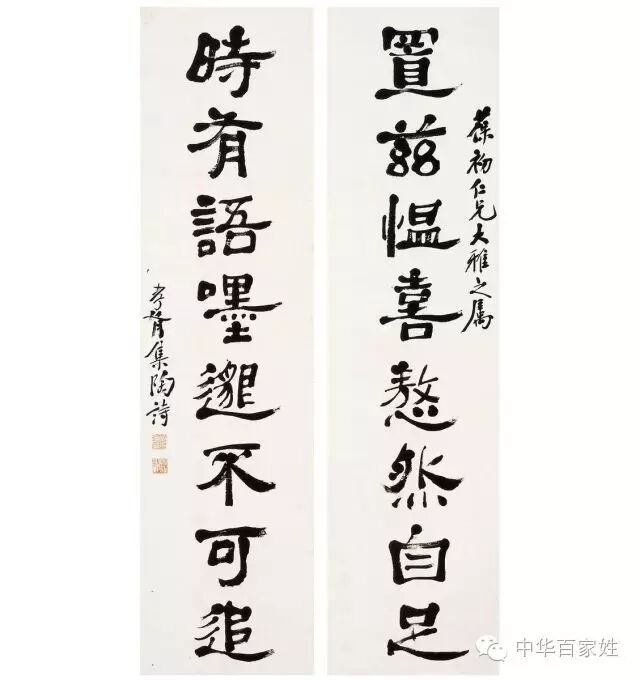 葆初仁兄大雅之屬
置茲愠喜慠然自足
時有語嘿邈不可追
孝胥集陶詩
中华百家姓